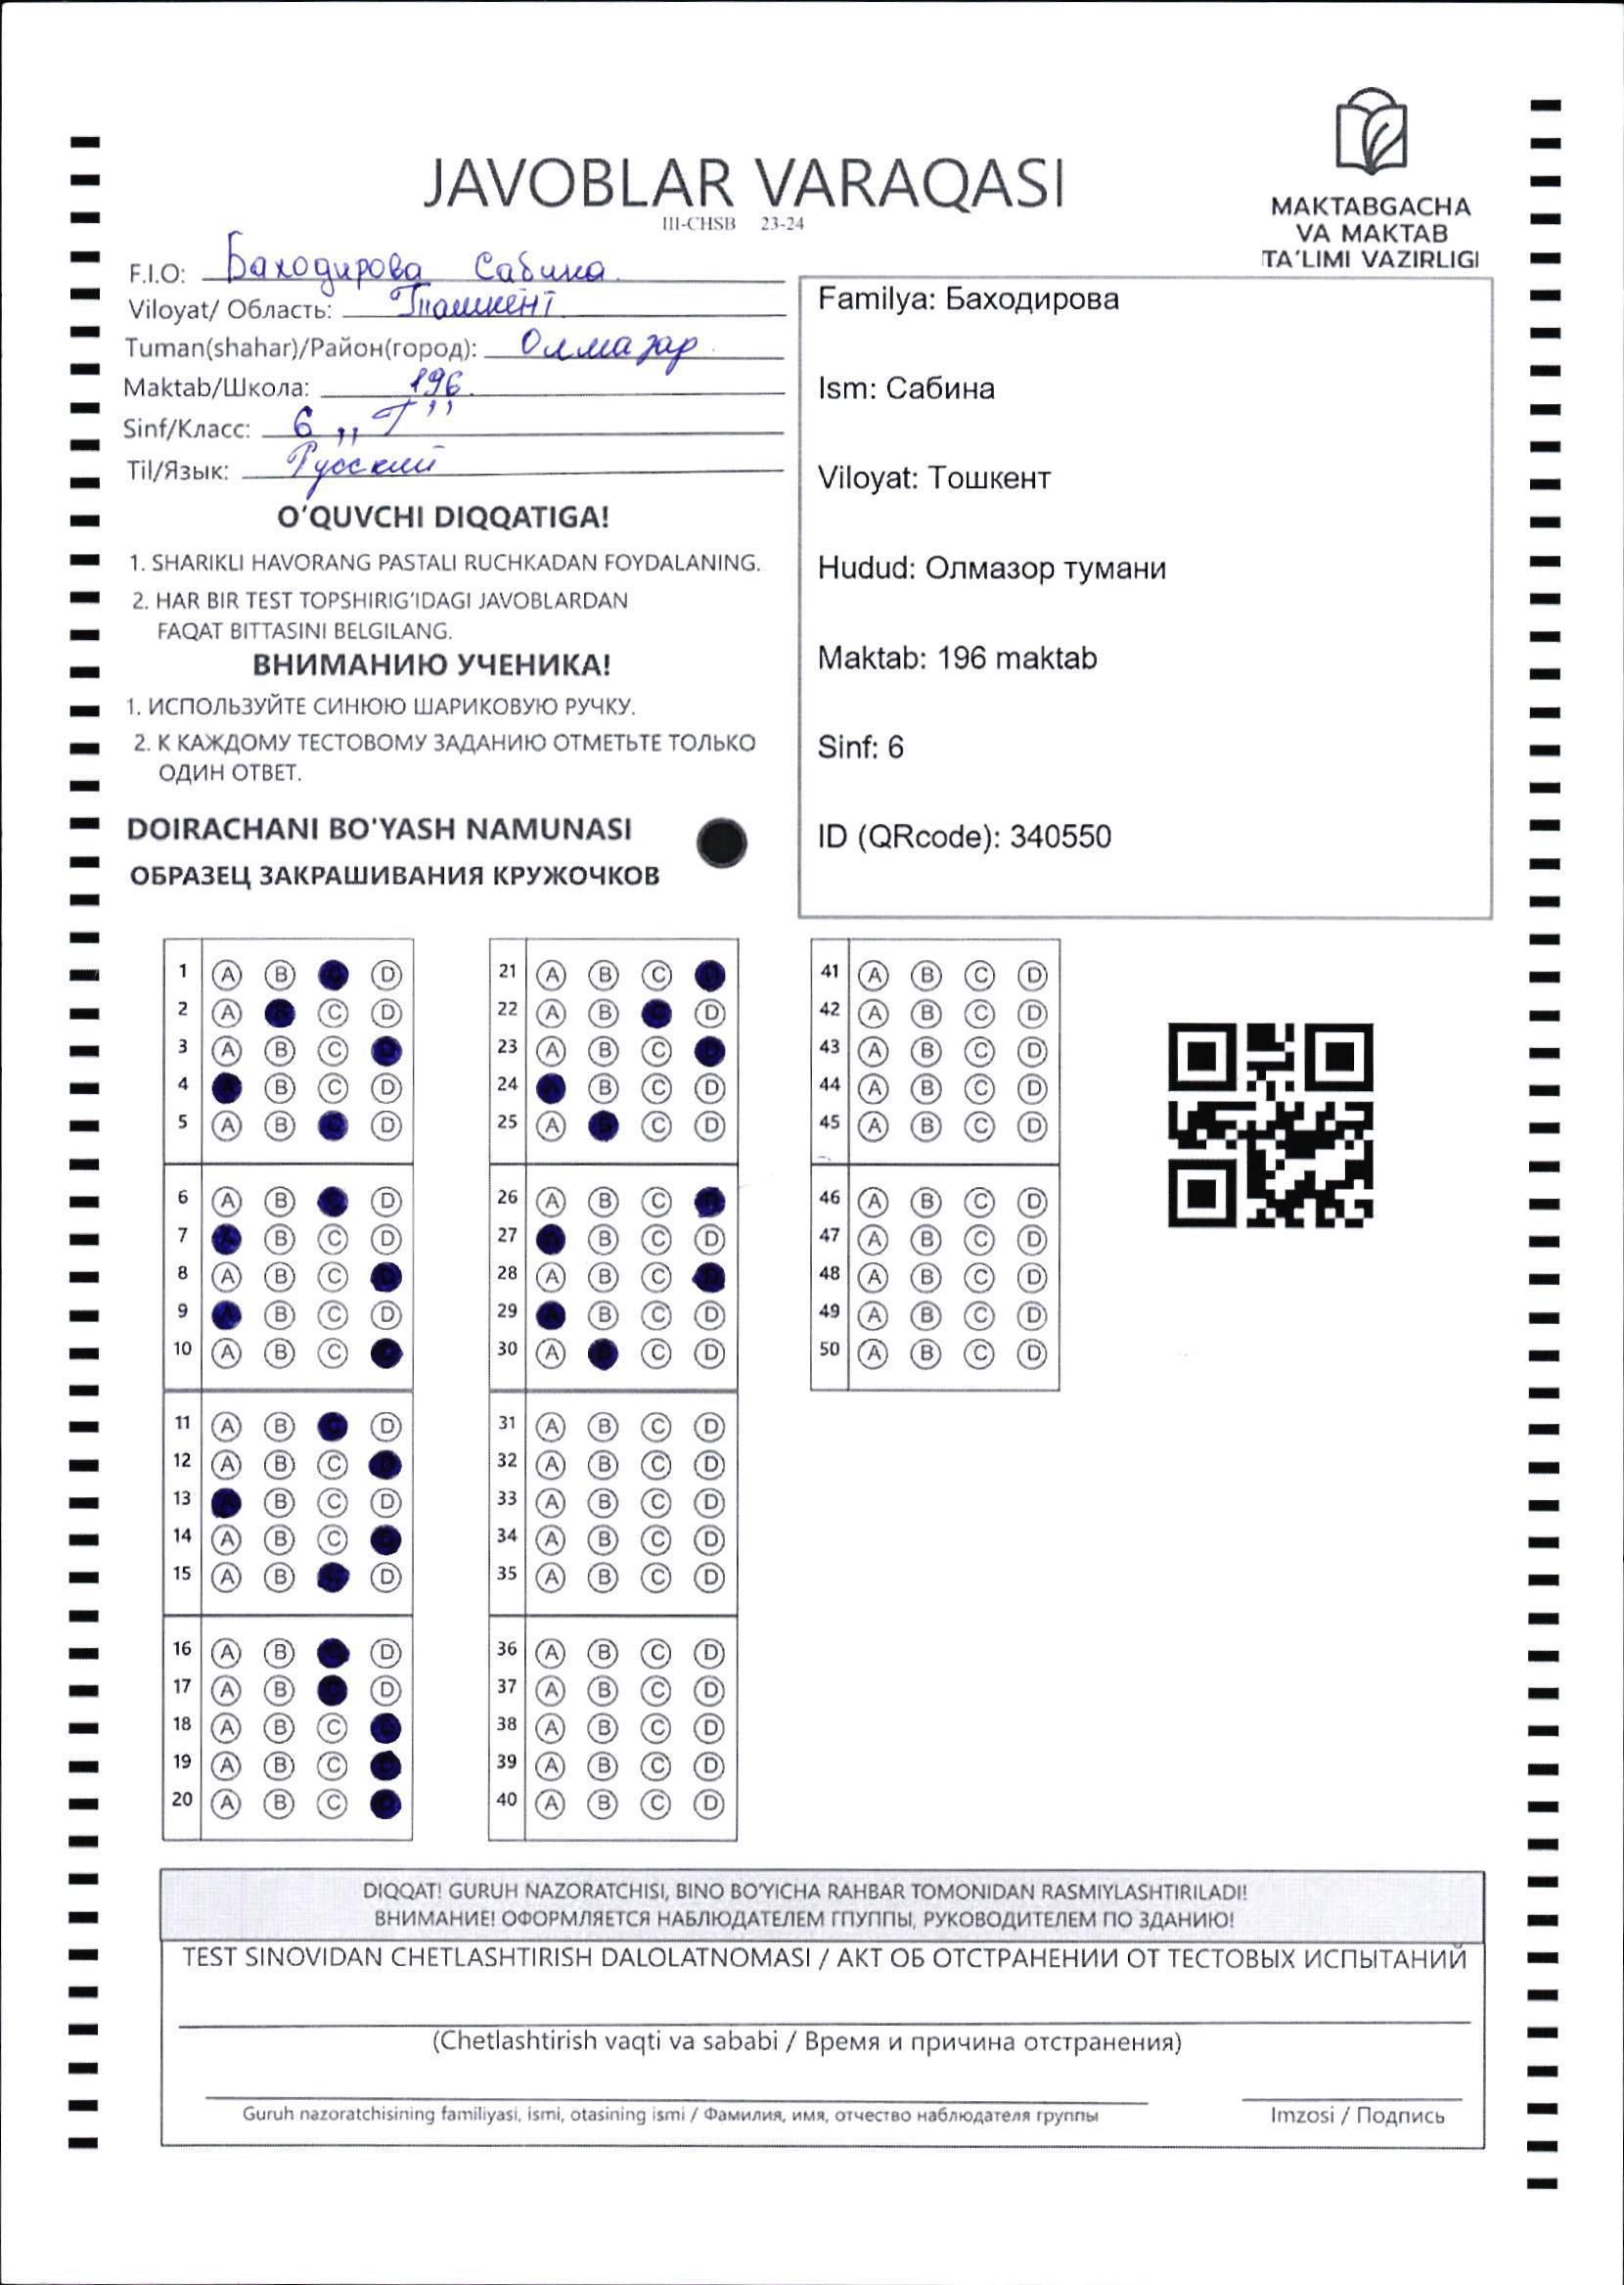 JAVOBLAR VARAQASI
III-CHSB 23-24
MAKTABGACHA
VA MAKTAB
TA'LIMI VAZIRLIGI
F.I.O: Баходирова Сабина
Viloyat/ Область: Ташкент
Tuman(shahar)/Район(город): Олмазар
Maktab/Школа: 196
Sinf/Класс: 6 ,,Г''
Til/Язык: Русский
O'QUVCHI DIQQATIGA!
1. SHARIKLI HAVORANG PASTALI RUCHKADAN FOYDALANING.
2. HAR BIR TEST TOPSHIRIG'IDAGI JAVOBLARDAN
FAQAT BITTASINI BELGILANG.
ВНИМАНИЮ УЧЕНИКА!
1. ИСПОЛЬЗУЙТЕ СИНЮЮ ШАРИКОВУЮ РУЧКУ.
2. К КАЖДОМУ ТЕСТОВОМУ ЗАДАНИЮ ОТМЕТЬТЕ ТОЛЬКО
ОДИН ОТВЕТ.
DOIRACHANI BO'YASH NAMUNASI
ОБРАЗЕЦ ЗАКРАШИВАНИЯ КРУЖОЧКОВ
Familya: Баходирова
Ism: Сабина
Viloyat: Тошкент
Hudud: Олмазор тумани
Maktab: 196 maktab
Sinf: 6
ID (QRcode): 340550
1 A B D
2 A C D
3 A B C
4 B C D
5 A B D
6 A B D
7 B C D
8 A B C
9 B C D
10 A B C
11 A B D
12 A B C
13 B C D
14 A B C
15 A B D
16 A B D
17 A B D
18 A B C
19 A B C
20 A B C
21 A B C
22 A B D
23 A B C
24 B C D
25 A C D
26 A B C
27 B C D
28 A B C
29 B C D
30 A C D
31 A B C D
32 A B C D
33 A B C D
34 A B C D
35 A B C D
36 A B C D
37 A B C D
38 A B C D
39 A B C D
40 A B C D
41 A B C D
42 A B C D
43 A B C D
44 A B C D
45 A B C D
46 A B C D
47 A B C D
48 A B C D
49 A B C D
50 A B C D
DIQQAT! GURUH NAZORATCHISI, BINO BO'YICHA RAHBAR TOMONIDAN RASMIYLASHTIRILADI!
ВНИМАНИЕ! ОФОРМЛЯЕТСЯ НАБЛЮДАТЕЛЕМ ГПУППЫ, РУКОВОДИТЕЛЕМ ПО ЗДАНИЮ!
TEST SINOVIDAN CHETLASHTIRISH DALOLATNOMASI / АКТ ОБ ОТСТРАНЕНИИ ОТ ТЕСТОВЫХ ИСПЫТАНИЙ
(Chetlashtirish vaqti va sababi / Время и причина отстранения)
Guruh nazoratchisining familiyasi, ismi, otasining ismi / Фамилия, имя, отчество наблюдателя группы
Imzosi / Подпись